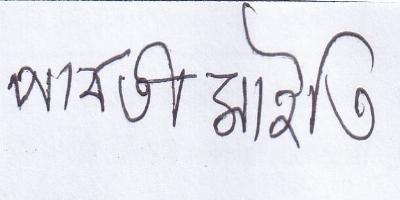 পাবতী মাইতি